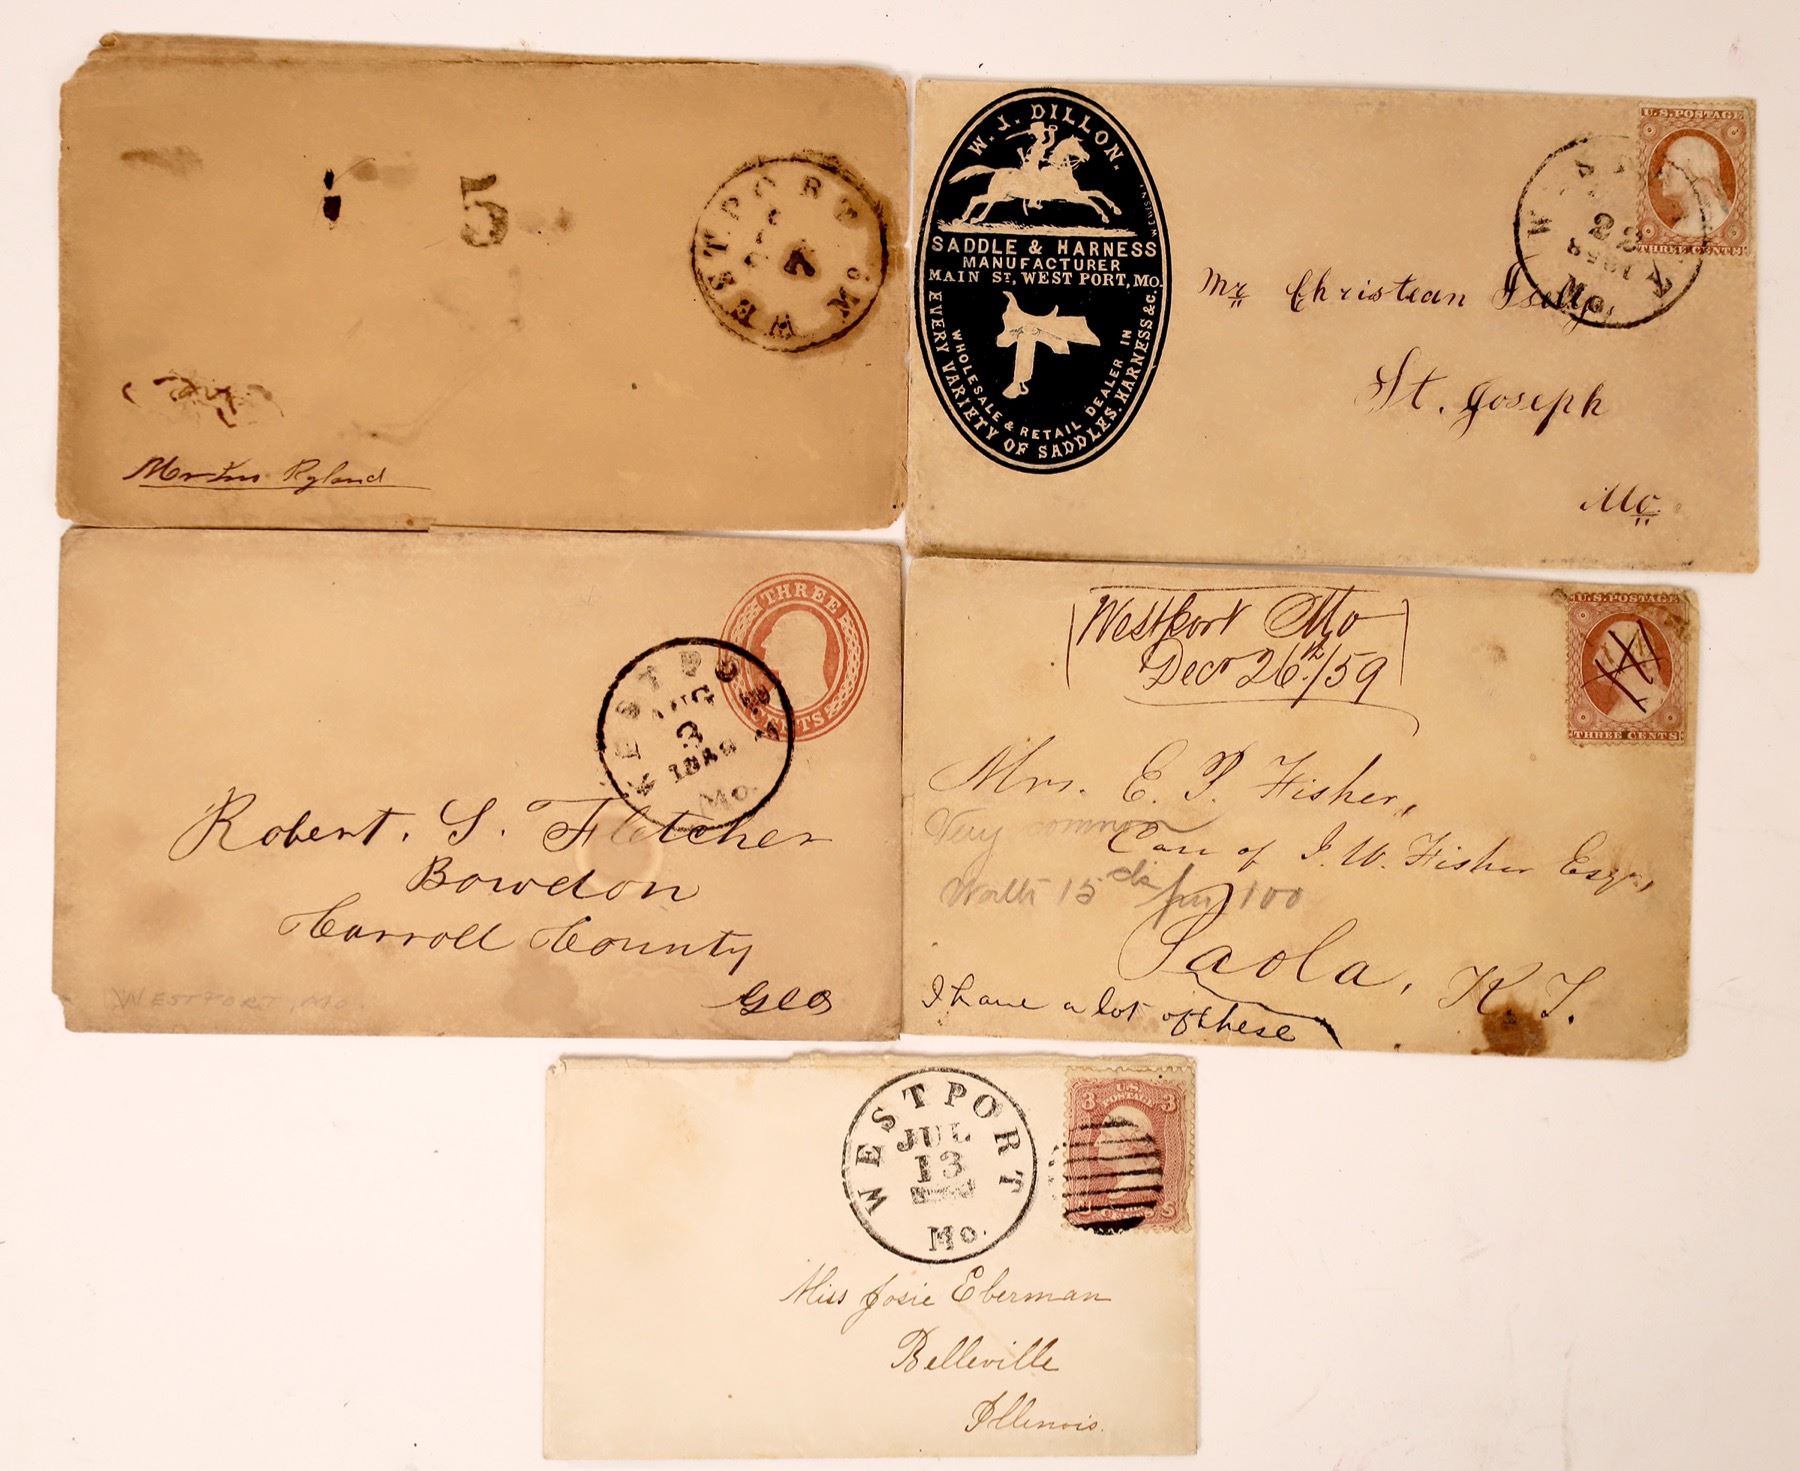 5
WESTPORT
7
Mo
Mr Jno Ryland
W. J. DILLON.
SADDLE & HARNESS
MANUFACTURER
MAIN ST, WEST PORT, MO.
WHOLESALE & RETAIL DEALER IN
EVERY VARIETY OF SADDLES, HARNESS &C.
U.S. POSTAGE
THREE CENTS
22
Mo.
Mr Christian
St. Joseph
Mo.
THREE
CENTS
WESTPORT
AUG
3
Mo.
Robert. S. Fletcher
Bowdon
Carroll County
Geo
WESTPORT, MO.
Westport Mo
Decr 26th/59
U.S. POSTAGE
THREE CENTS
Mrs. E. P. Fisher,
Very common
Care of I. W. Fisher Esqr,
Worth 15 cts per 100
Paola, K. T.
I have a lot of these
WESTPORT
JUL
13
Mo.
U.S.
POSTAGE
3 3
Miss Josie Eberman
Belleville
Illinois.